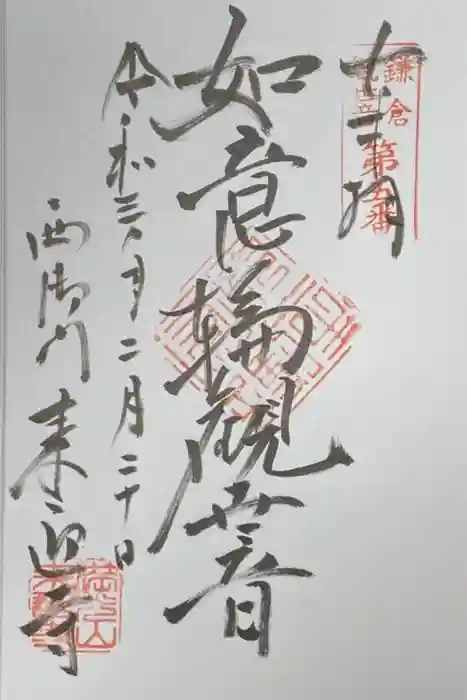 奉拝
鎌倉
観世音
第五番
如意輪観世音
令和三年二月二十日
西御門 来迎寺